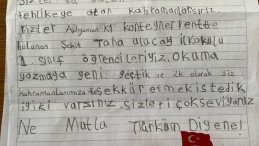 tehlikeye atan kahramanlarsınız.
Bizler Adıyaman K1 konteynerkentte
bulunan Şehit Taha uluçay ilkokulu
1. sınıf öğrencileriyiz. Okuma
yazmaya yeni geçtik ve ilk olarak siz
kahramanlarımıza teşekkür etmek istedik
iyiki varsınız, sizleri çok seviyoruz
Ne Mutlu Türküm Diyene!